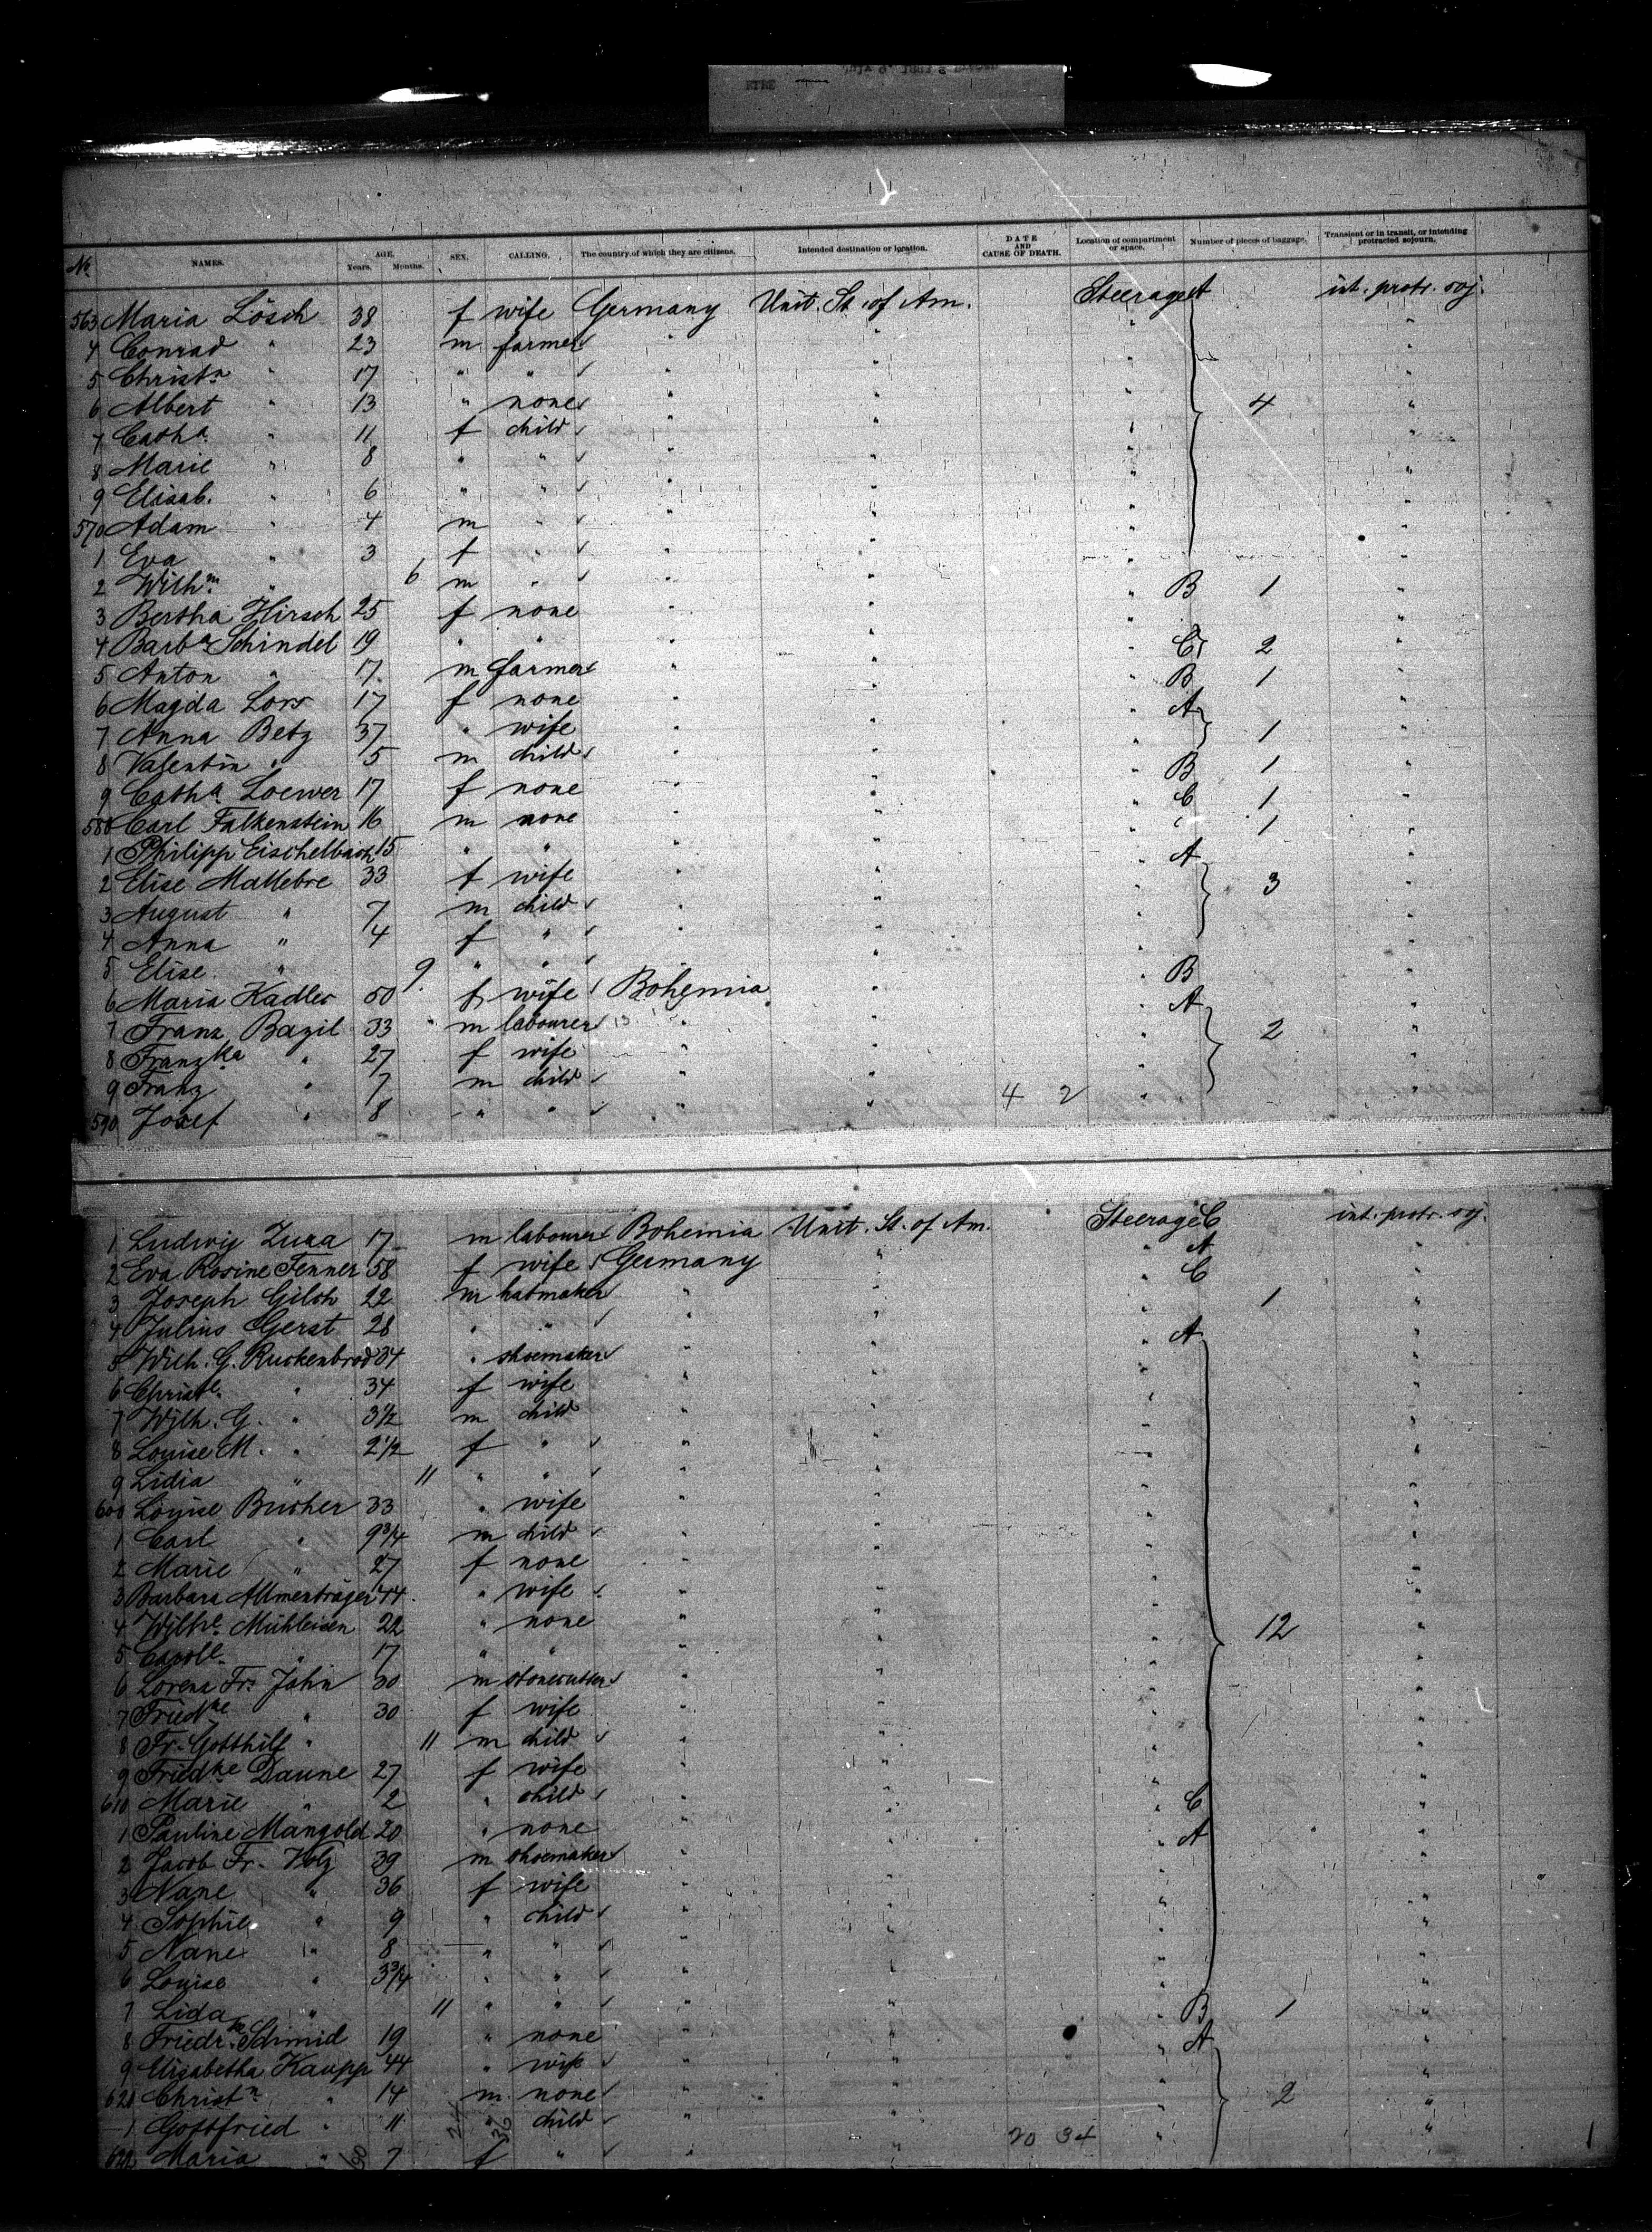 No. NAMES. AGE. Years. Months. SEX. CALLING. The country of which they are citizens. Intended destination or location. DATE AND CAUSE OF DEATH. Location of compartment or space. Number of pieces of baggage. Transient or in transit, or intending protracted sojourn.
563 Maria Lösch 38 f wife Germany Unit. St. of Am. Steerage A int. protr. soj.
4 Conrad " 23 m farmer " " " "
5 Christn " 17 " " " " " "
6 Albert " 13 " none " " " 4 "
7 Catha " 11 f child " " " "
8 Marie " 8 " " " " " "
9 Elisab. " 6 " " " " " "
570 Adam " 4 m " " " " "
1 Eva " 3 f " " " " "
2 Wilhm " 6 m " " " " "
3 Bertha Hirsch 25 f none " " " B 1 "
4 Barba Schindel 19 " " " " " "
5 Anton " 17 m farmer " " " C 2 "
6 Magda Lors 17 f none " " " B 1 "
7 Anna Betz 37 " wife " " " A "
8 Valentin " 5 m child " " " 1 "
9 Catha Loewer 17 f none " " " B 1 "
580 Carl Falkenstein 16 m none " " " C 1 "
1 Philipp Eischelbach 15 " " " " " " 1 "
2 Elise Mallebre 33 f wife " " " A "
3 August " 7 m child " " " 3 "
4 Anna " 4 f " " " " "
5 Elise " 9 " " " " " "
6 Maria Kadler 50 f wife Bohemia " " B "
7 Franz Bazil 33 m labourer " " " A "
8 Franzka " 27 f wife " " " 2 "
9 Franz " 7 m child " " " "
590 Josef " 8 " " " " 4 2 " "
1 Ludwig Zuza 17 m labourer Bohemia Unit. St. of Am. Steerage C int. protr. soj.
2 Eva Rosine Fenner 58 f wife Germany " " A "
3 Joseph Gilch 22 m hatmaker " " " C "
4 Julius Gerst 28 " " " " " 1 "
5 Wilh. G. Ruckenbrod 34 " shoemaker " " " A "
6 Christe " 34 f wife " " " "
7 Wilh. G. " 3½ m child " " " "
8 Louise M. " 2½ f " " " " "
9 Lidia " 11 " " " " " "
600 Louise Bucher 33 " wife " " " "
1 Carl " 9¾ m child " " " "
2 Marie " 27 f none " " " "
3 Barbara Allmenträger 44 " wife " " " "
4 Wilhe Mühleisen 22 " none " " " 12 "
5 Carole " 17 " " " " " "
6 Lorenz Fr. Jahn 30 m stonecutter " " " "
7 Friedke " 30 f wife " " " "
8 Fr. Gotthilf " 11 m child " " " "
9 Friedke Daune 27 f wife " " " "
610 Marie " 2 " child " " " "
1 Pauline Mangold 20 " none " " " C "
2 Jacob Fr. Volz 39 m shoemaker " " " A "
3 Nane " 36 f wife " " " "
4 Sophie " 9 " child " " " "
5 Nane " 8 " " " " " "
6 Louise " 3¾ " " " " " "
7 Lida " 11 " " " " " "
8 Friedrke Schmid 19 " none " " " B 1 "
9 Elisabetha Kaupp 44 " wife " " " A "
620 Christn " 14 m none " " " 2 "
1 Gottfried " 11 " child " " " "
622 Maria " 7 f " " " 20 34 " "